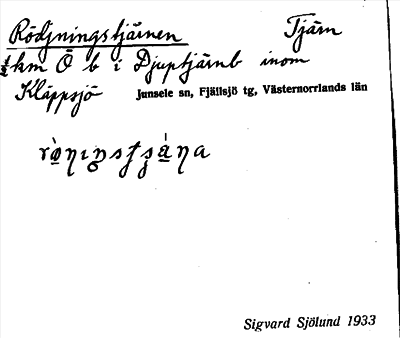 Rödjningstjärnen Tjärn
½ km Ö b i Djuptjärnb inom
Kläppsjö Junsele sn, Fjällsjö tg, Västernorrlands län
Sigvard Sjölund 1933